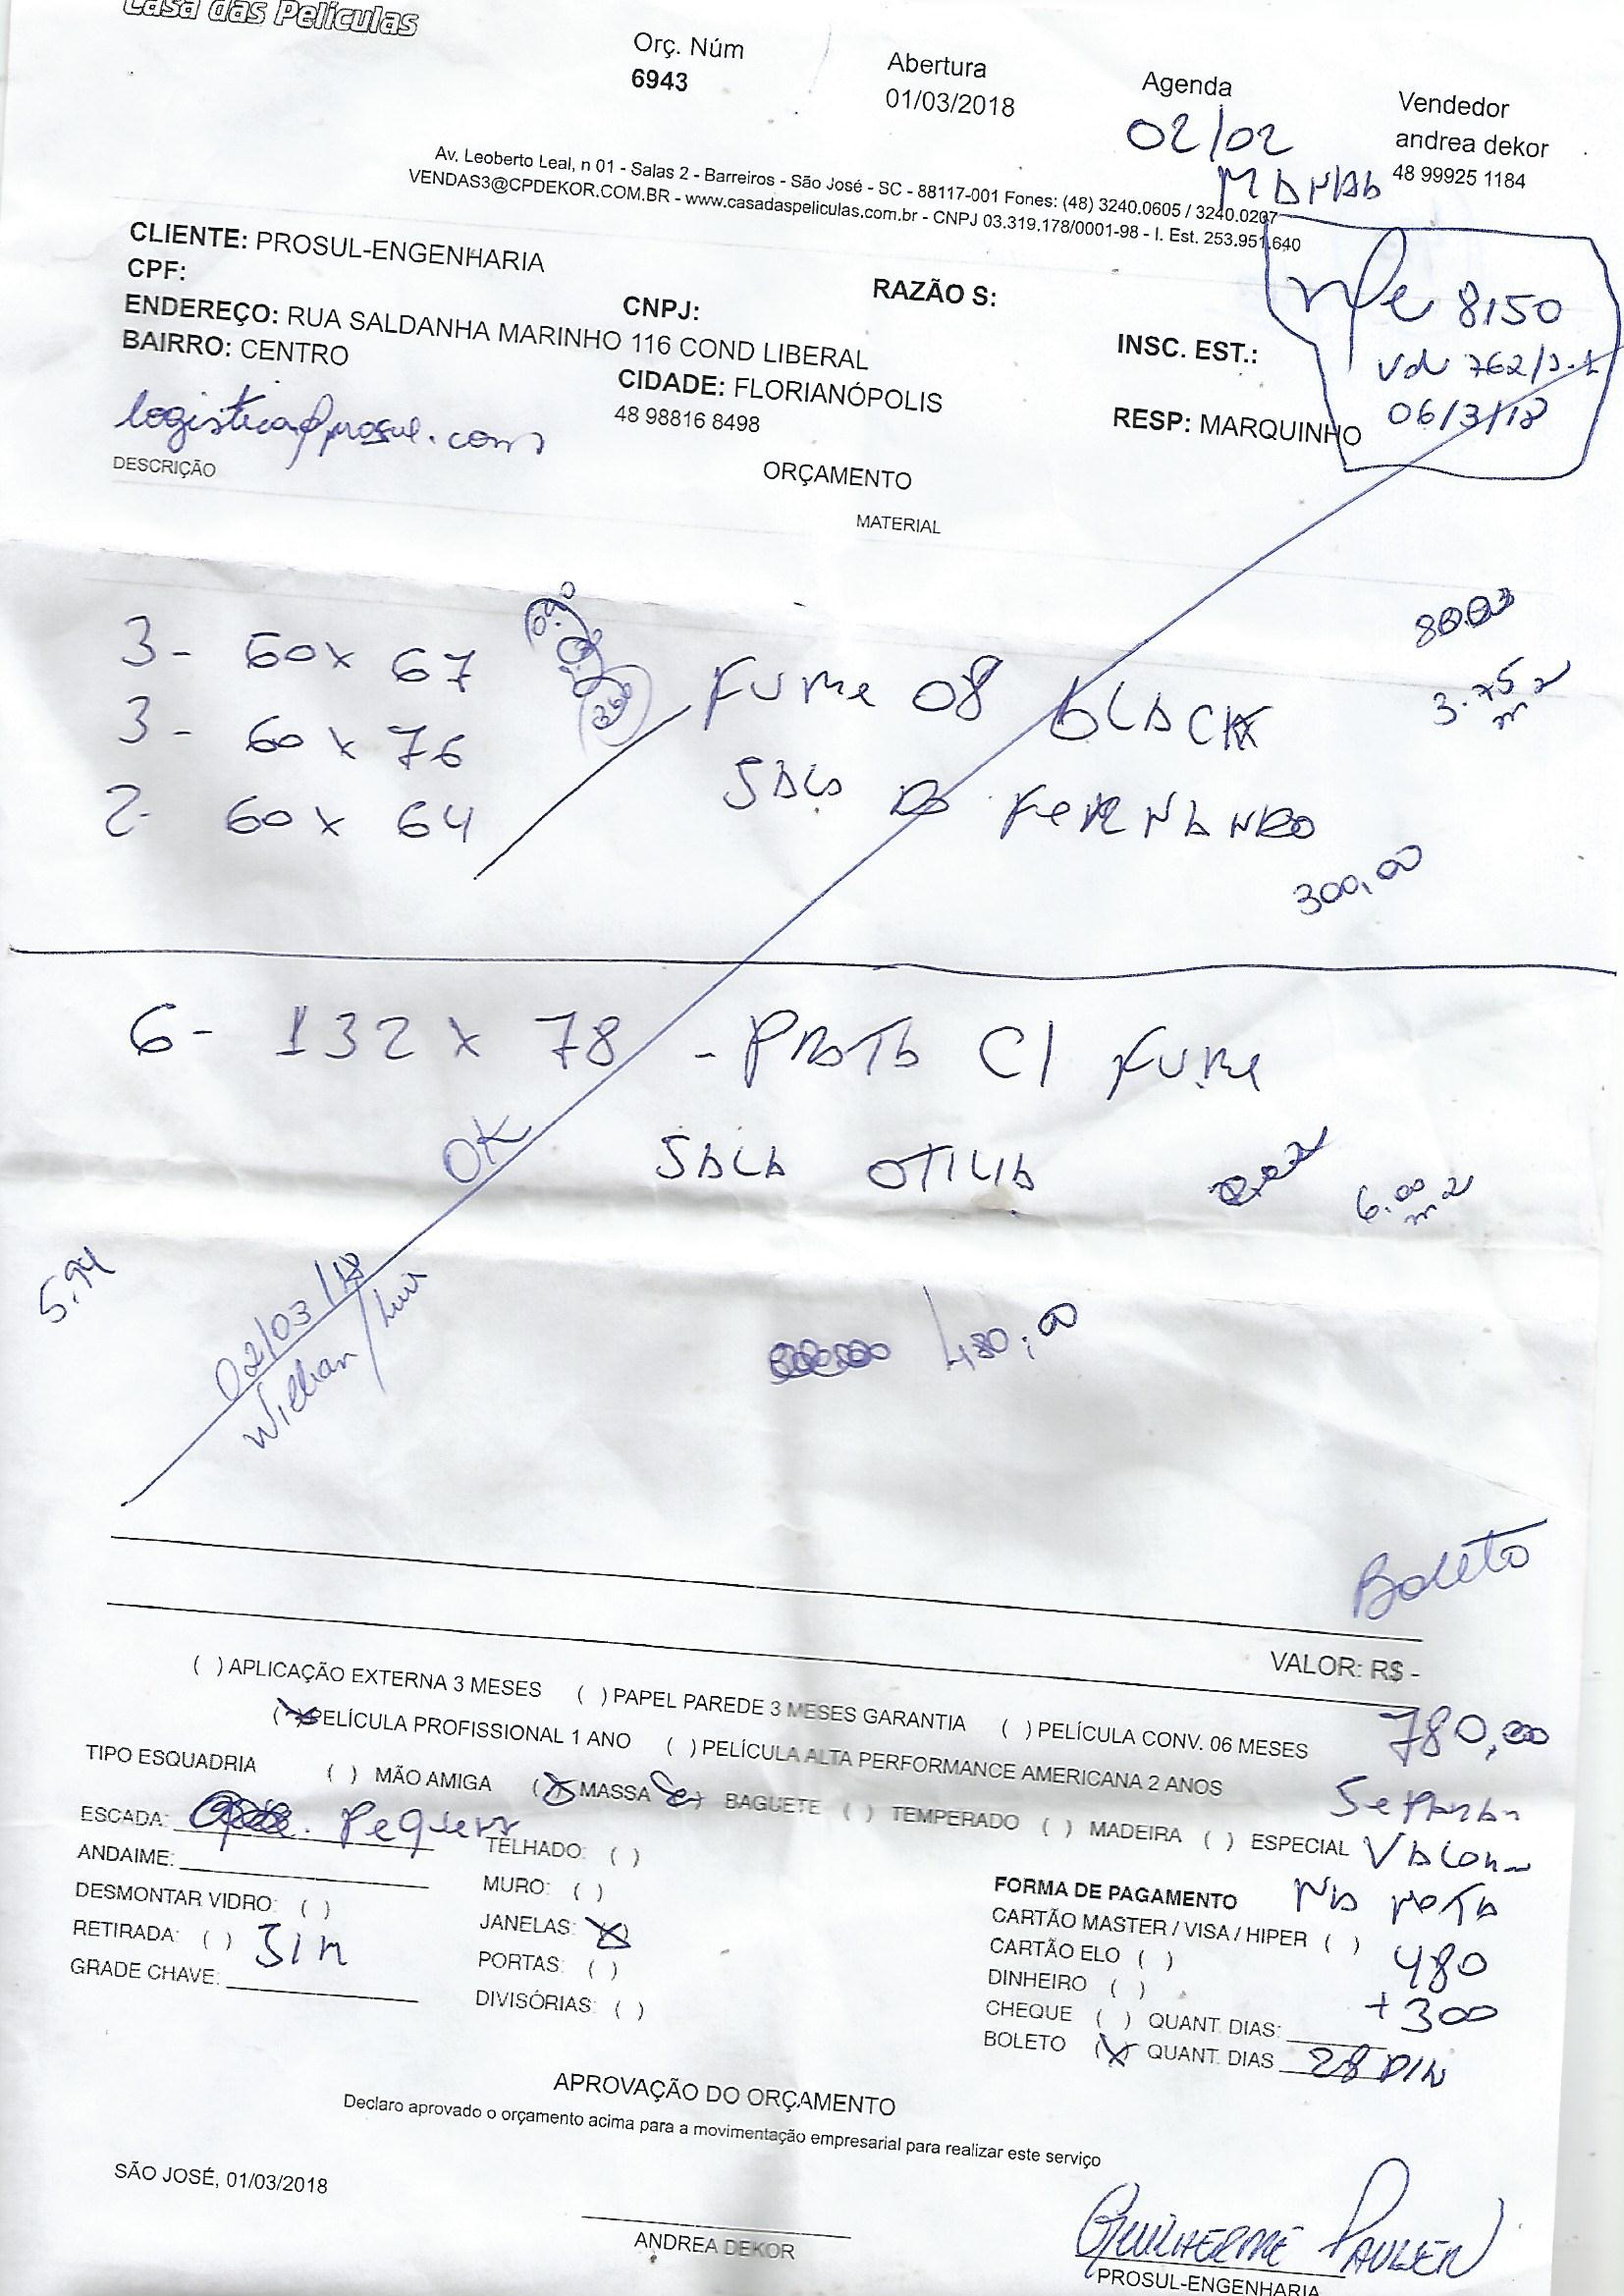 Casa das Películas
Orç. Núm
6943
Abertura
01/03/2018
Agenda
02/02
Vendedor
andrea dekor
48 99925 1184
Av. Leoberto Leal, n 01 - Salas 2 - Barreiros - São José - SC - 88117-001 Fones: (48) 3240.0605 / 3240.0207
VENDAS3@CPDEKOR.COM.BR - www.casadaspeliculas.com.br - CNPJ 03.319.178/0001-98 - I. Est. 253.951.640
CLIENTE: PROSUL-ENGENHARIA
CPF:
CNPJ:
RAZÃO S:
ENDEREÇO: RUA SALDANHA MARINHO 116 COND LIBERAL
INSC. EST.:
BAIRRO: CENTRO
CIDADE: FLORIANÓPOLIS
48 98816 8498
RESP: MARQUINHO
8150
06/3/18
logistica@prosul.com
DESCRIÇÃO
ORÇAMENTO
MATERIAL
3- 60 x 67
3- 60 x 76
2- 60 x 64
FUME 08 BLACK
SALA DO FERNANDO
3.75 m2
300,00
6- 132 x 78 - PRATA C/ FUME
SALA OTILIA
6.00 m2
OK
5.94
02/03/18
Willian/Luis
480,00
Boleto
VALOR: R$ -
780,00
( ) APLICAÇÃO EXTERNA 3 MESES ( ) PAPEL PAREDE 3 MESES GARANTIA ( ) PELÍCULA CONV. 06 MESES
(X) PELÍCULA PROFISSIONAL 1 ANO ( ) PELÍCULA ALTA PERFORMANCE AMERICANA 2 ANOS
TIPO ESQUADRIA ( ) MÃO AMIGA (X) MASSA ( ) BAGUETE ( ) TEMPERADO ( ) MADEIRA ( ) ESPECIAL
Separar
Valor
na nota
480
+300
ESCADA: Pequena
ANDAIME:
DESMONTAR VIDRO: ( )
RETIRADA: ( ) Sim
GRADE CHAVE:
TELHADO: ( )
MURO: ( )
JANELAS: (X)
PORTAS: ( )
DIVISÓRIAS: ( )
FORMA DE PAGAMENTO
CARTÃO MASTER / VISA / HIPER ( )
CARTÃO ELO ( )
DINHEIRO ( )
CHEQUE ( ) QUANT. DIAS:
BOLETO (X) QUANT. DIAS 28 DIA
APROVAÇÃO DO ORÇAMENTO
Declaro aprovado o orçamento acima para a movimentação empresarial para realizar este serviço
SÃO JOSÉ, 01/03/2018
ANDREA DEKOR
GUILHERME PAULSEN
PROSUL-ENGENHARIA